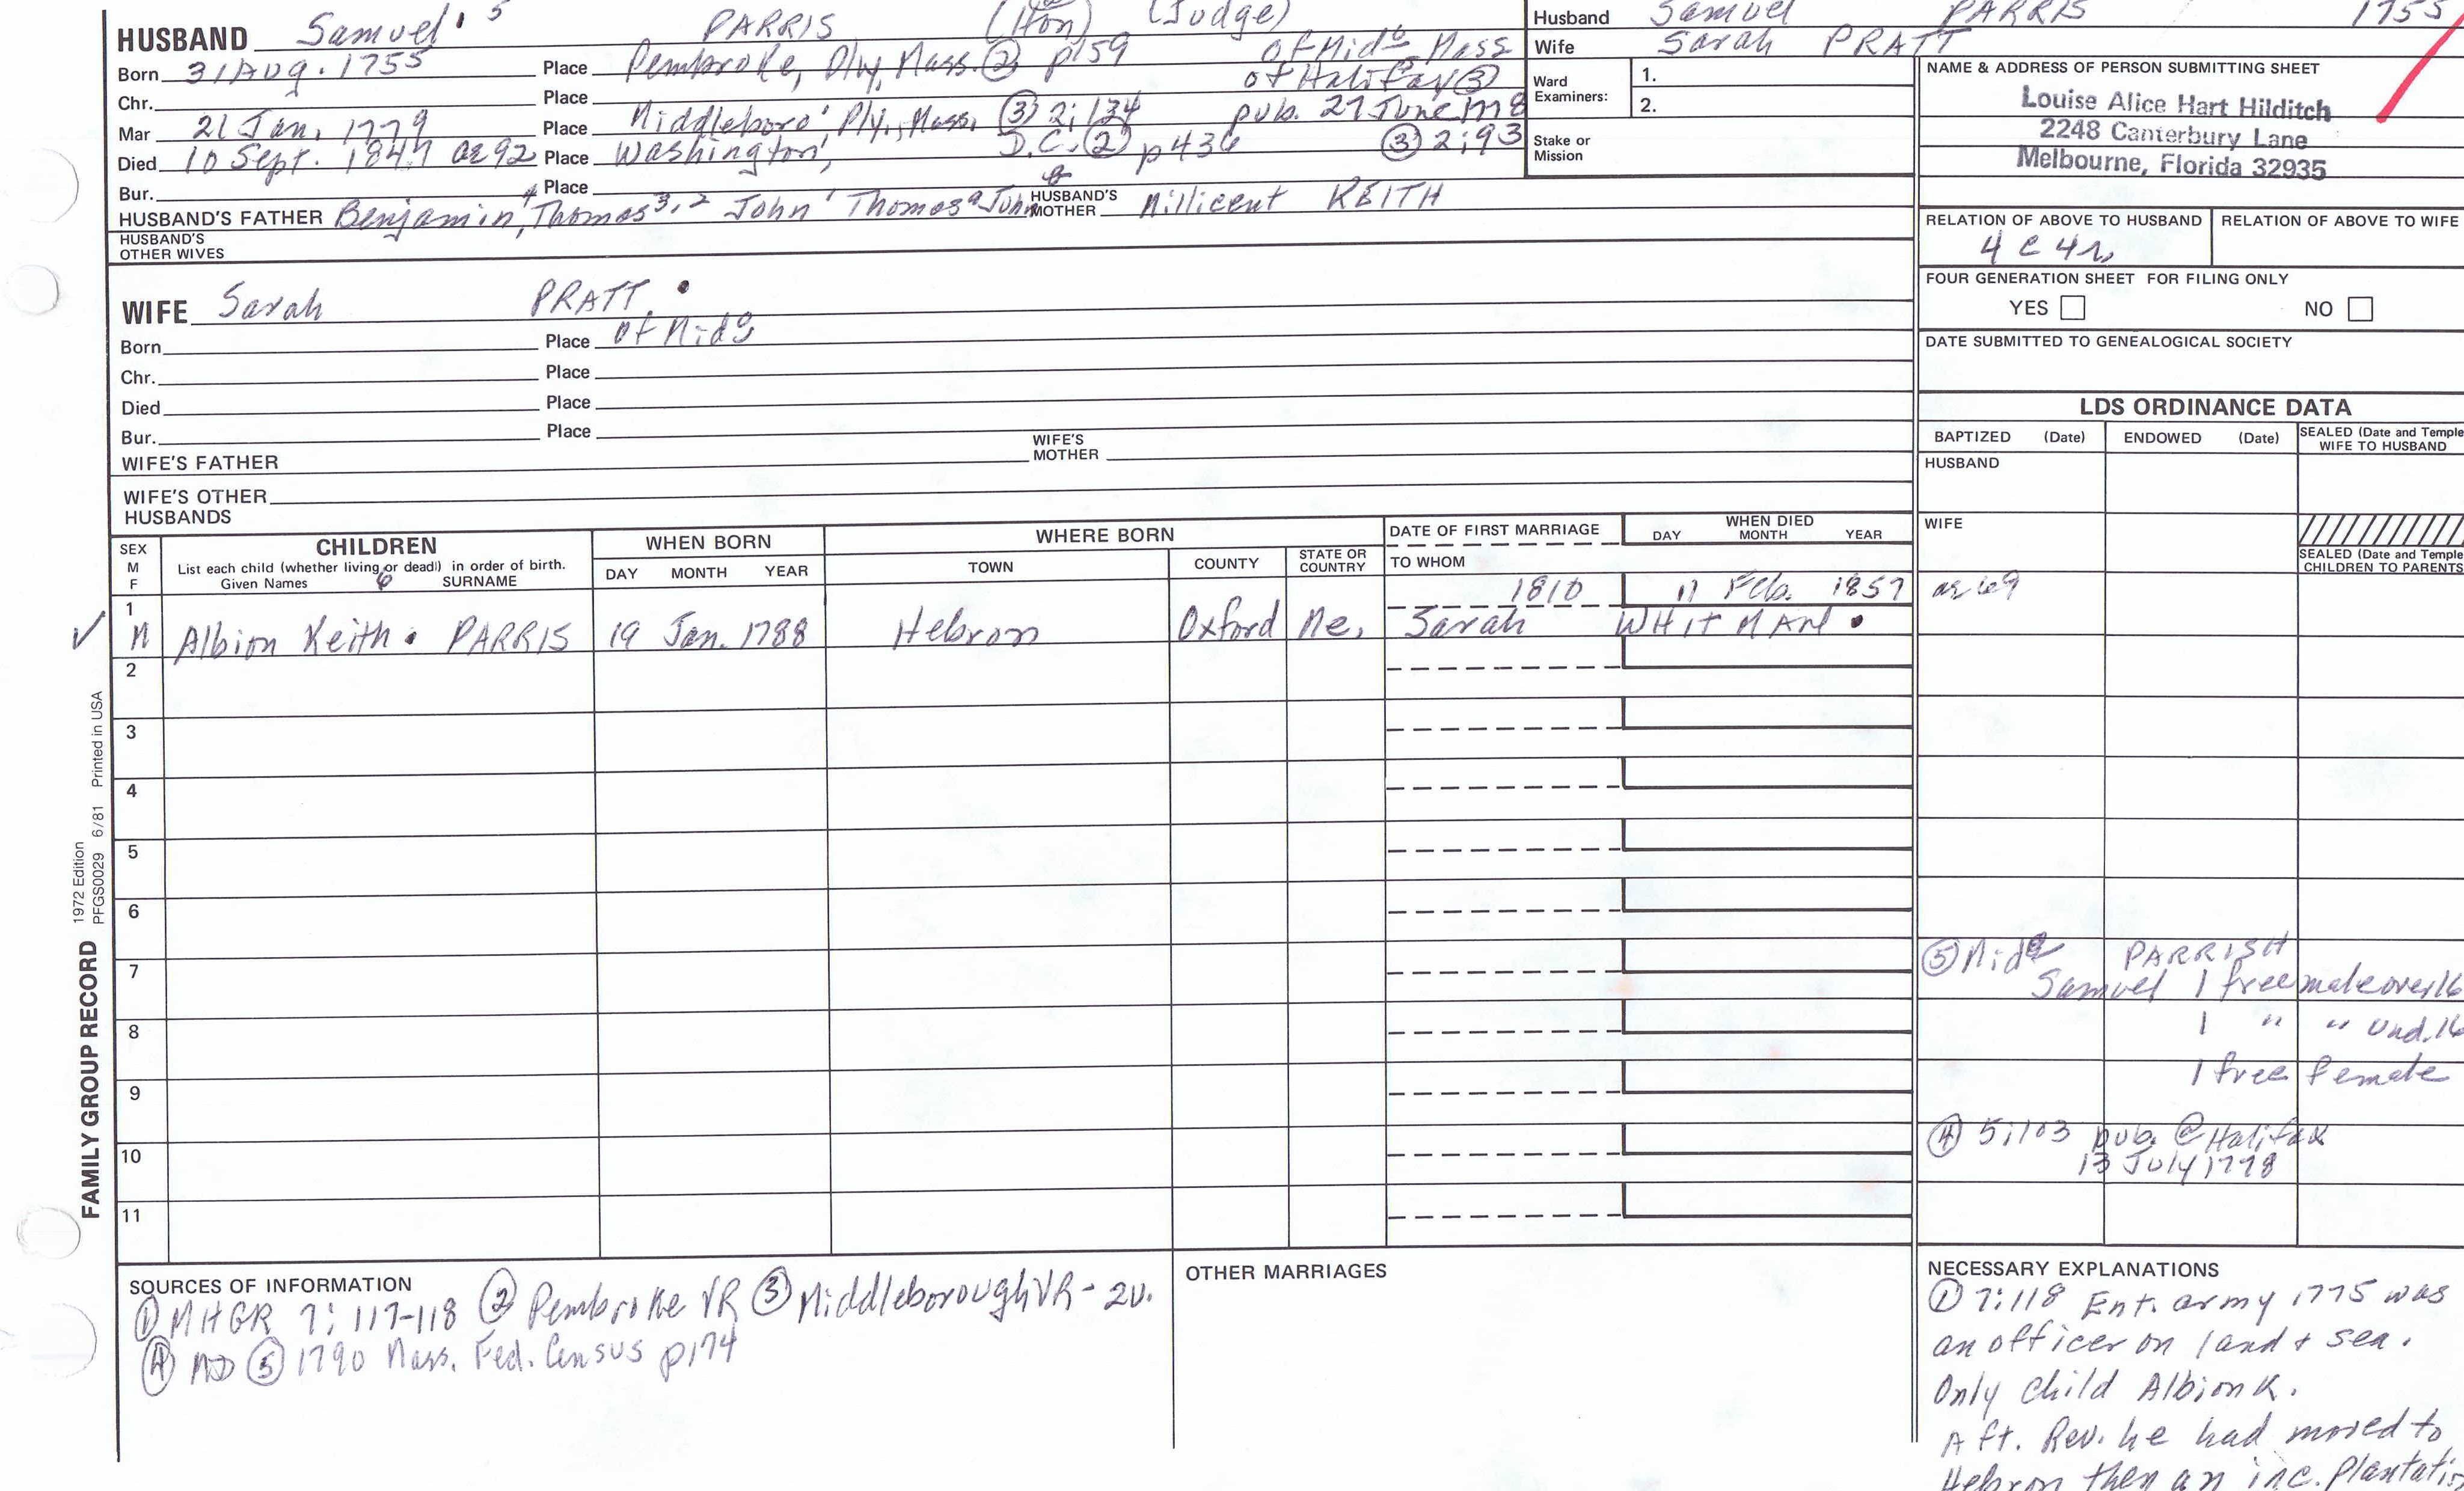 HUSBAND Samuel 5 PARRIS (Hon) (Judge)
Born 31 Aug. 1755 Place Pembroke, Ply, Mass. ② p159 of Mido Mass
Chr. Place of Halifax ③
Mar 21 Jan. 1779 Place Middleboro', Ply., Mass. ③ 2:134 pub. 27 June 1778
Died 10 Sept. 1847 ae 92 Place Washington, D.C. ② p436 ③ 2:93
Bur. Place
HUSBAND'S FATHER Benjamin 4, Thomas 3,2 John 1 Thomas a John HUSBAND'S MOTHER Millicent KEITH
HUSBAND'S OTHER WIVES
Husband Samuel PARRIS 1755
Wife Sarah PRATT
Ward Examiners: 1.
2.
Stake or Mission
NAME & ADDRESS OF PERSON SUBMITTING SHEET
Louise Alice Hart Hilditch
2248 Canterbury Lane
Melbourne, Florida 32935
RELATION OF ABOVE TO HUSBAND RELATION OF ABOVE TO WIFE
4 c 4 r.
FOUR GENERATION SHEET FOR FILING ONLY
YES NO
DATE SUBMITTED TO GENEALOGICAL SOCIETY
WIFE Sarah PRATT
Born Place of Mido
Chr. Place
Died Place
Bur. Place
WIFE'S FATHER WIFE'S MOTHER
WIFE'S OTHER HUSBANDS
LDS ORDINANCE DATA
BAPTIZED (Date) ENDOWED (Date) SEALED (Date and Temple
WIFE TO HUSBAND
HUSBAND
WIFE
SEALED (Date and Temple
CHILDREN TO PARENTS
SEX M F CHILDREN WHEN BORN WHERE BORN DATE OF FIRST MARRIAGE WHEN DIED
List each child (whether living or dead) in order of birth.
Given Names 6 SURNAME DAY MONTH YEAR TOWN COUNTY STATE OR COUNTRY TO WHOM DAY MONTH YEAR
1 1810 11 Feb. 1857 ae 69
M Albion Keith PARRIS 19 Jan. 1788 Hebron Oxford Me. Sarah WHITMAN
2
3
4
5
6
7
8
9
10
11
⑤ Mido PARRISH
Samuel 1 free male over 16
1 " " und. 16
1 free female
④ 5:103 pub. @ Halifax
13 July 1778
FAMILY GROUP RECORD 1972 Edition
PFGS0029 6/81 Printed in USA
SOURCES OF INFORMATION
① MHGR 7: 117-118 ② Pembroke VR ③ Middleborough VR - 2v.
④ MD ⑤ 1790 Mass. Fed. Census p174
OTHER MARRIAGES
NECESSARY EXPLANATIONS
① 7:118 Ent. army 1775 was
an officer on land + sea.
Only child Albion K.
Aft. Rev. he had moved to
Hebron then an inc. Plantati